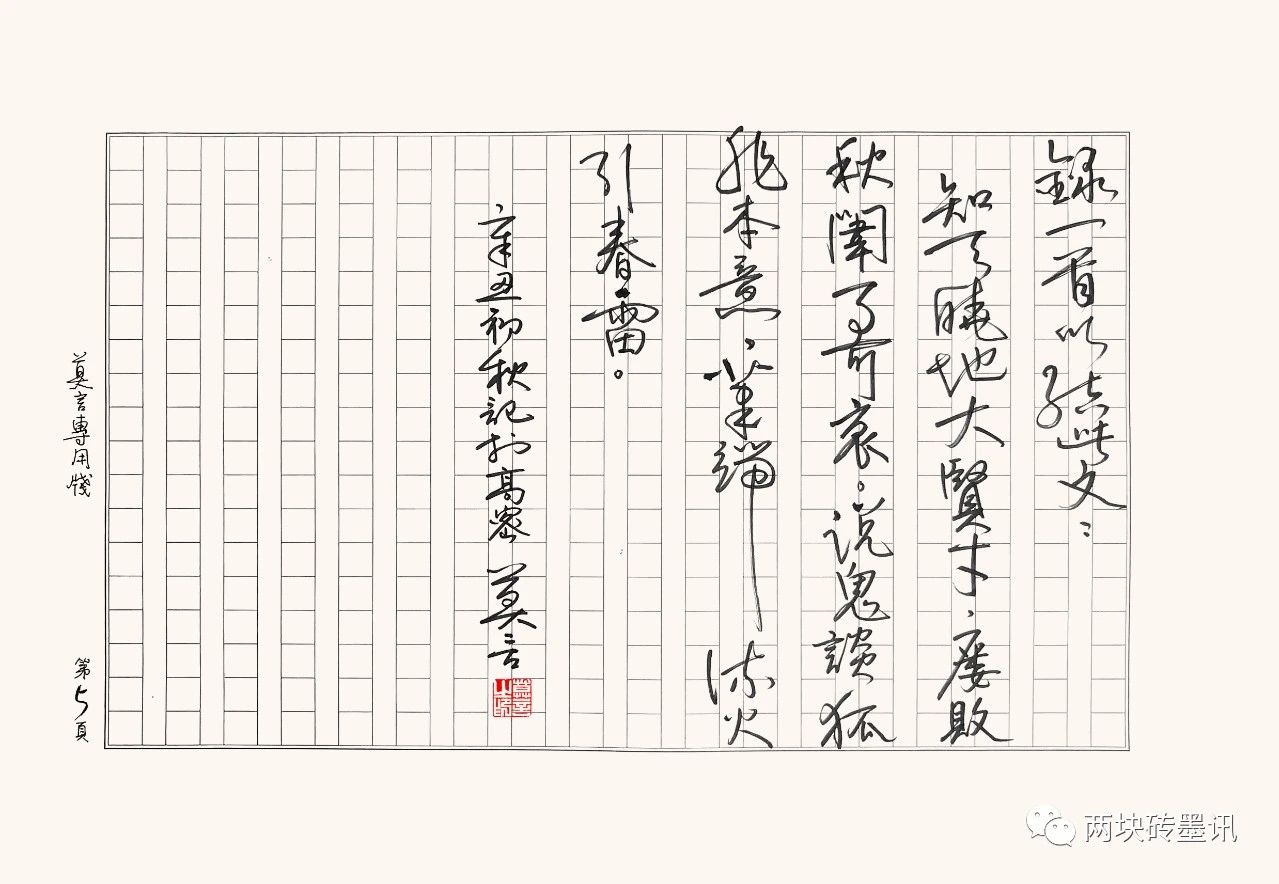 録一首以結此文：
知天曉地大賢才，屢敗
秋闈事可哀。說鬼談狐
非本意，筆端流火
引春雷。
辛丑初秋記於高密 莫言
莫言專用箋
第5頁
两块砖墨讯